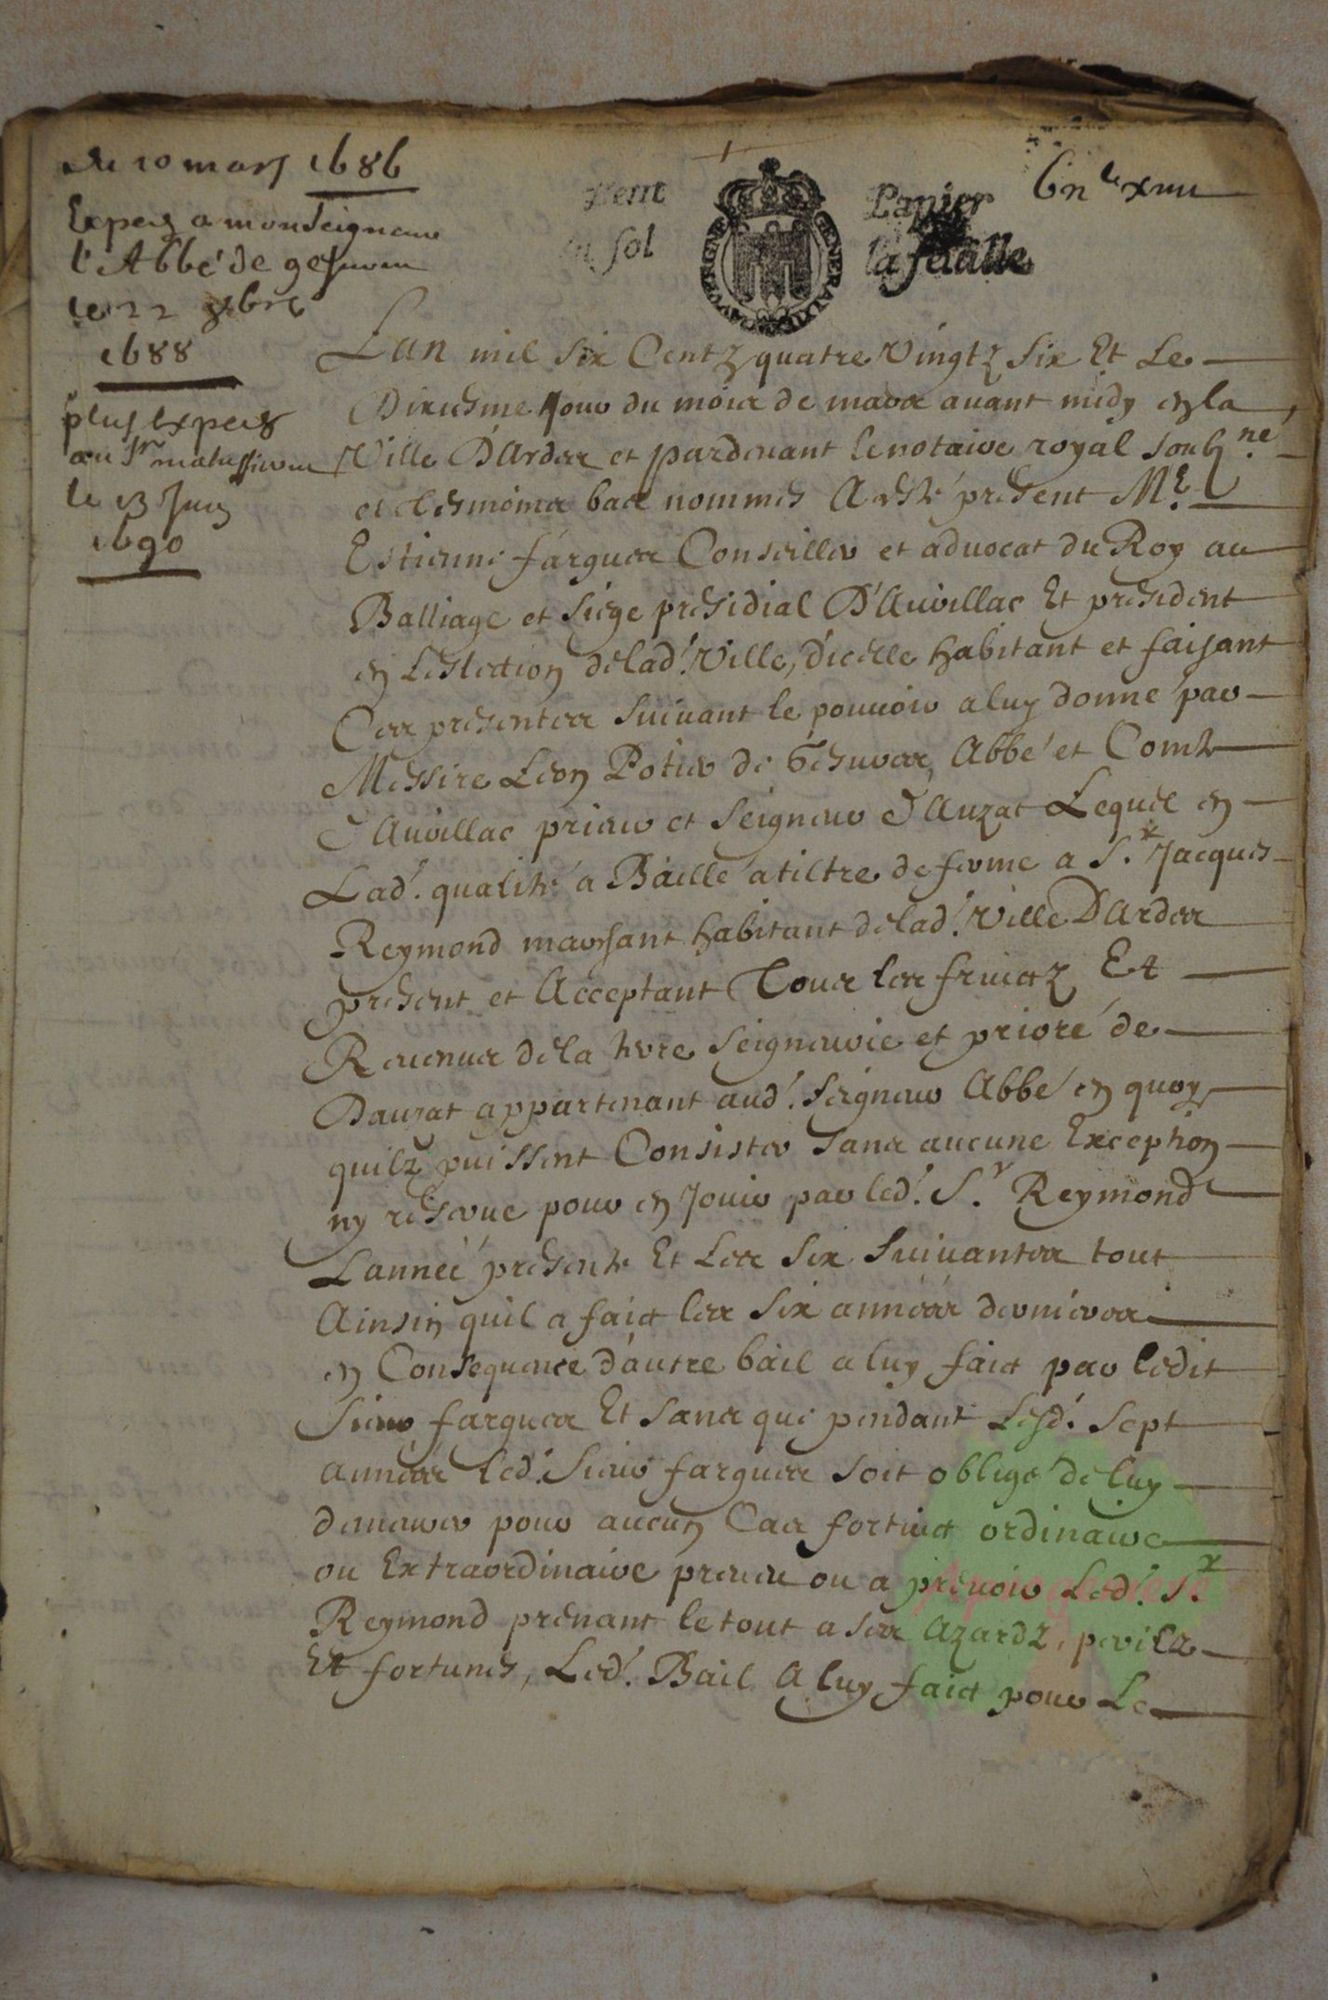 du 10 mars 1686
Expers a monseigneur
l'Abbé de gesurem
le 22 xbre
1688
plus expers
au Sr matussieum
le 13 Juin
1690
Petit
un sol
GENERALITE
Papier
la feuille
Lan mil six Centz quatre Vingtz six Et Le
Dixiesme Jour du mois de mars avant midy en la
Ville D'Ardes et pardevant le notaire royal soubz.né
et tesmoins bas nommés A esté present Me.
Estienne farguas Conseiller et advocat du Roy au
Balliage et siege presidial D'Auvillac Et president
en Leslection delad. Ville, d'icelle habitant et faisant
Ces presentes suivant le pouvoir a luy donné par
Messire Leon Potier de Gesures, Abbé et Comte
d'Auvillac prieur et Seigneur d'Auzat Lequel en
Lad. qualité a Baillé a tiltre de ferme a Sr. Jacques
Reymond marchant habitant delad. Ville D'Ardes
present et Acceptant Tous les fruictz Et
Revenus de la terre Seigneurie et prioré de
Dauzat appartenant aud. Seigneur Abbé en quoy
quilz puissent Consister sans aucune Exception
ny reserve pour en Jouir par led. Sr. Reymond
Lannée presente Et Les six suivantes tout
Ainsin quil a faict les six années dernieres
en Consequence d'autre bail a luy faict par ledit
Sieur farguas Et sans que pendant Lesd. sept
années led. Sieur farguas soit obligé de luy
demeurer pour aucun Cas fortuict ordinaire
ou Extraordinaire preveu ou a prevoir Led. Sr
Reymond prenant le tout a ses Azardz, perilz
Et fortunes, Led. Bail A luy faict pour Le